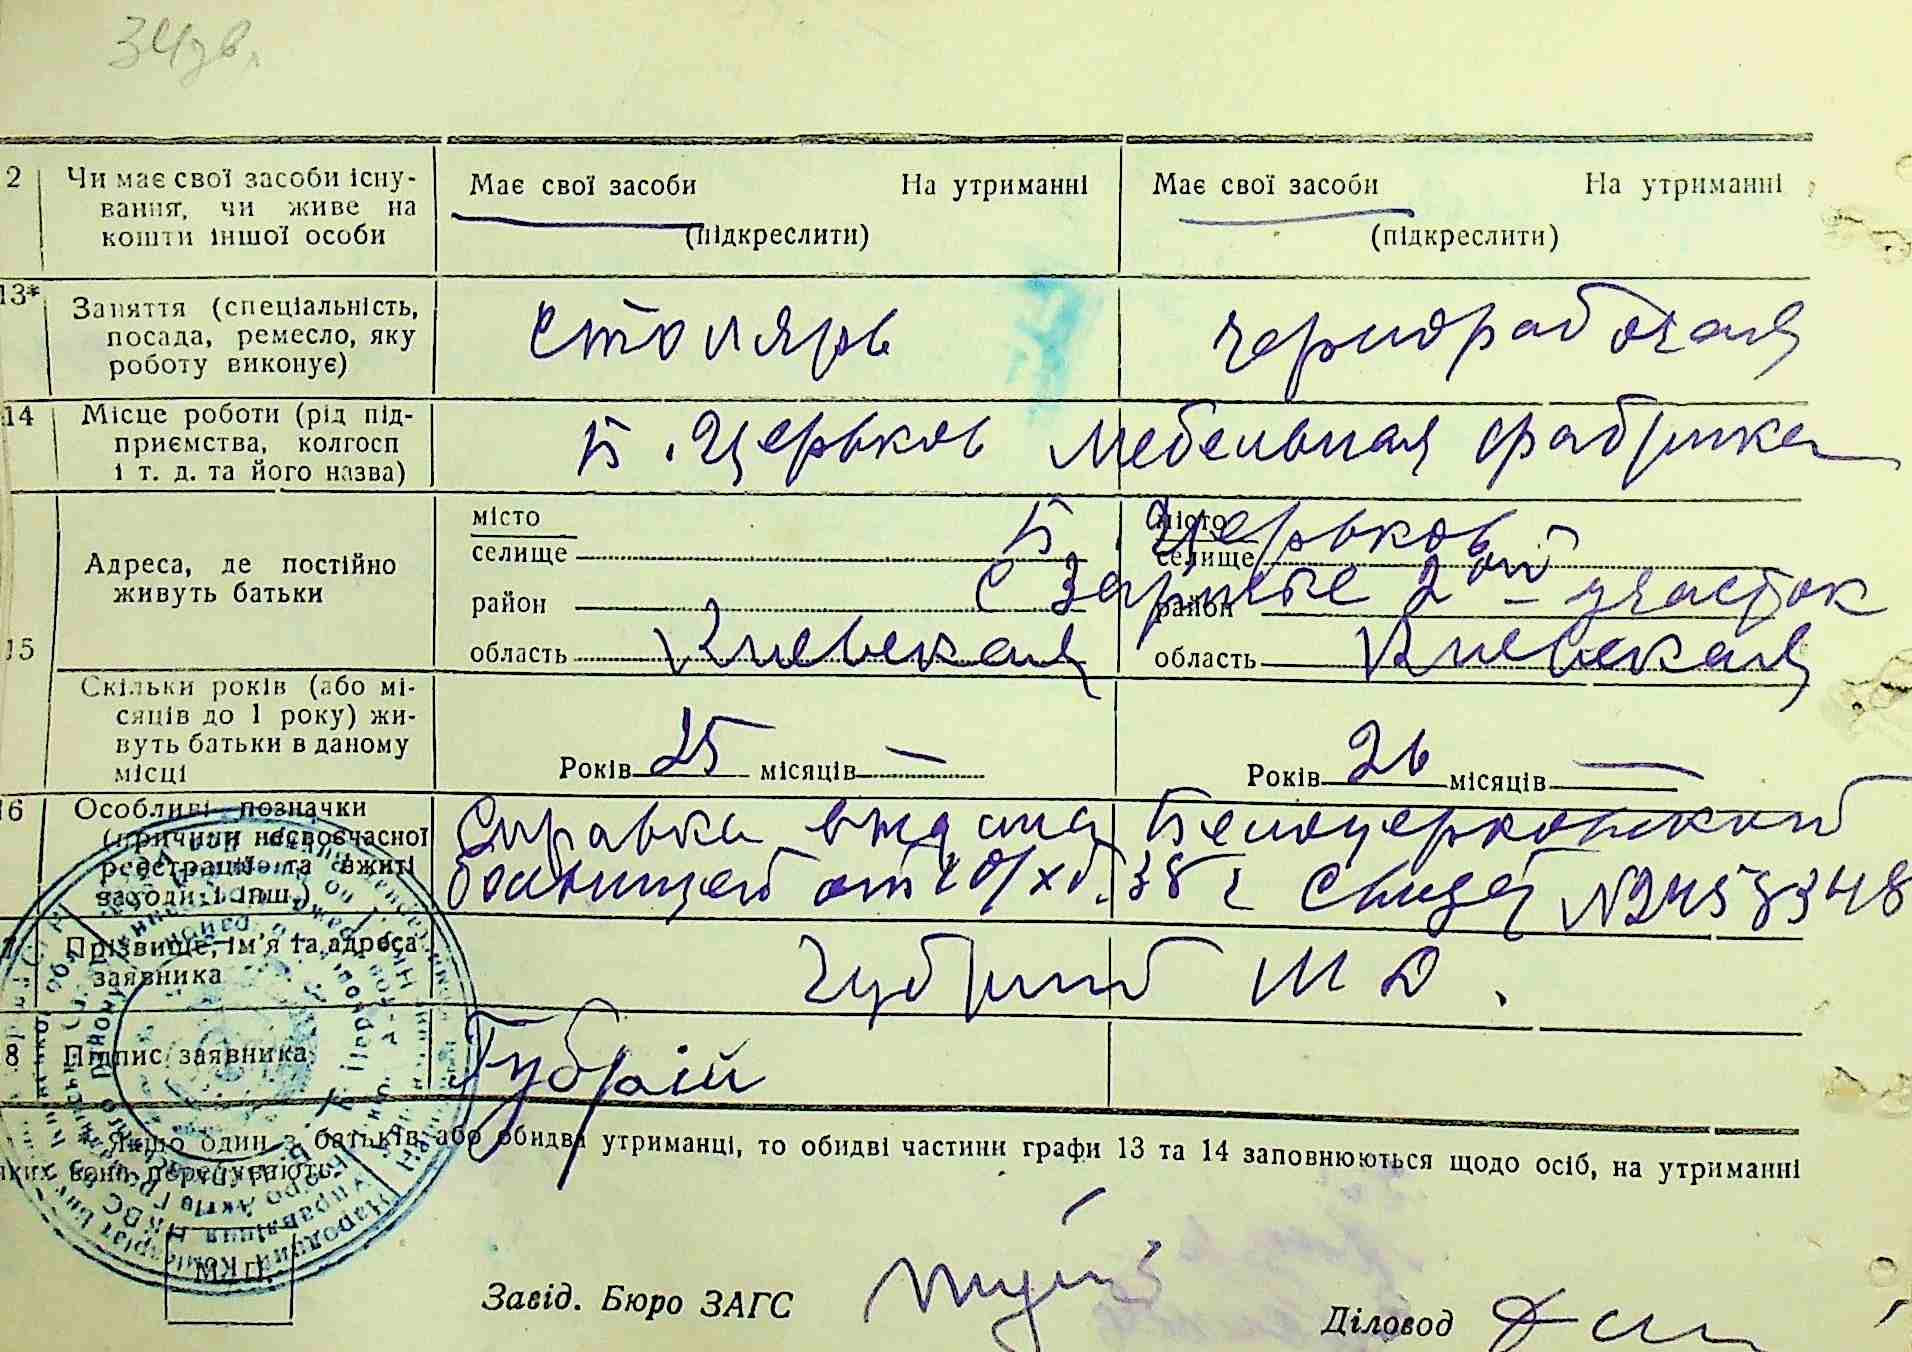 34зв.
2 Чи має свої засоби існу- Має свої засоби На утриманні Має свої засоби На утриманні
вання, чи живе на
кошти іншої особи (підкреслити) (підкреслити)
13* Заняття (спеціальність, столярь чернорабочая
посада, ремесло, яку
роботу виконує)
14 Місце роботи (рід під- Б. Церьков Мебельная фабрика
приємства, колгосп
і т. д. та його назва)
місто Б. Церьков місто
селище селище
Адреса, де постійно
живуть батьки
район с Заричье 2ой участок район
15 область Киевская область Киевская
Скільки років (або мі-
сяців до 1 року) жи-
вуть батьки в даному
місці Років 25 місяців — Років 26 місяців —
16 Особливі позначки Справка выдана Белоцерковский
(причини несвоєчасної
реєстрації та вжиті больницей от
заходи і інш.) 38 г Свидет №2458348
7 Прізвище, ім'я та адреса Губрий М Д.
заявника
8 Підпис заявника Губрій
Якщо один з батьків або обидва утриманці, то обидві частини графи 13 та 14 заповнюються щодо осіб, на утриманні
яких вони перебувають.
М.П.
Завід. Бюро ЗАГС
Діловод